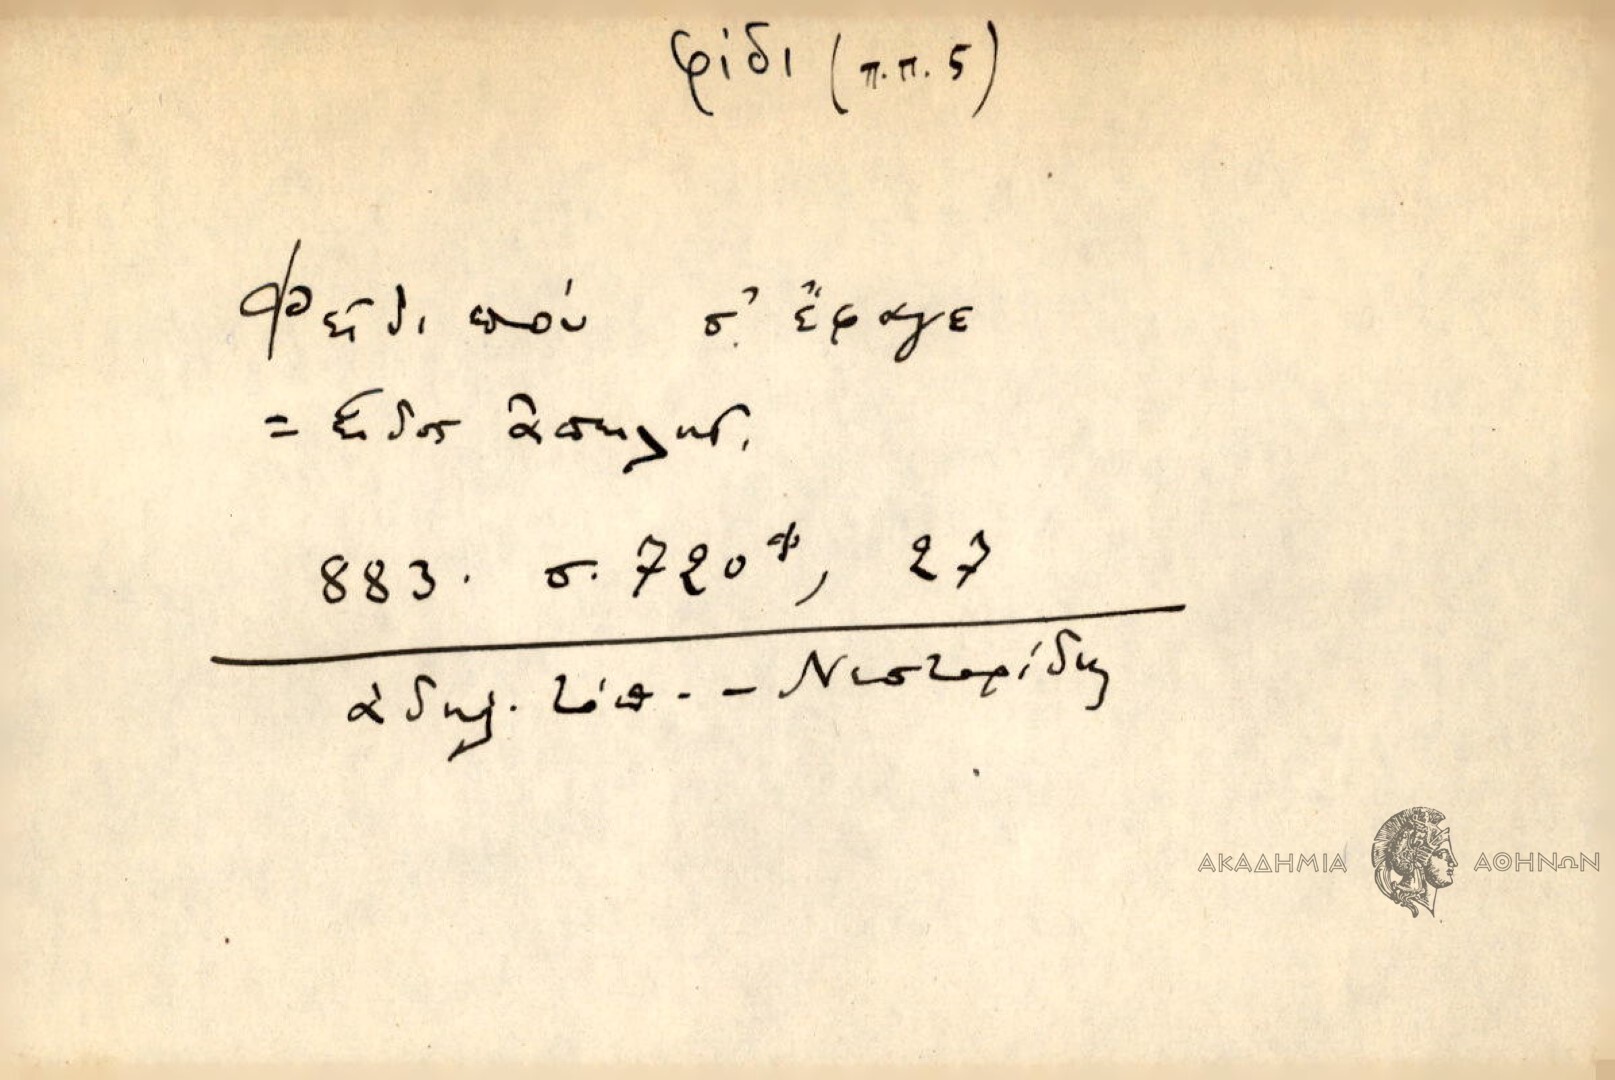 φίδι (π.π. 5)
Φεῖδι πού σ' ἔφαγε
= εἶδος ἀπειλῆς.
883. σ. 720φ, 27
ἀδήλ. τόπ. - Νεστορίδης
ΑΚΑΔΗΜΙΑ ΑΘΗΝΩΝ